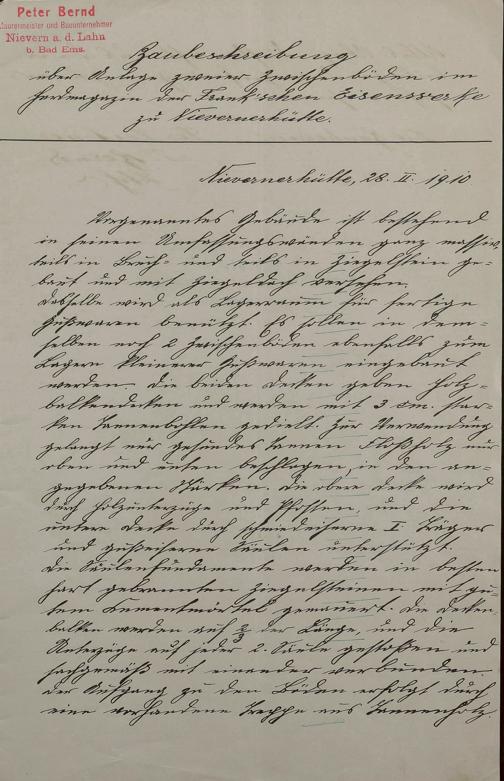 Peter Bernd
Maurermeister und Bauunternehmer
Nievern a. d. Lahn
b. Bad Ems.
Baubeschreibung
über Anlage zweier Zwischenböden im
Herdmagazin der Frank'schen Eisenwerke
zu Nievernerhütte.
Nievernerhütte, 28. II. 1910
Vorgenanntes Gebäude ist bestehend
in seinen Umfassungswänden ganz massiv,
teils in Bruch- und teils in Ziegelstein ge-
baut und mit Ziegeldach versehen.
Dasselbe wird als Lagerraum für fertige
Gußwaren benützt. Es sollen in dem-
selben noch 2 Zwischenböden ebenfalls zum
Lagern kleinerer Gußwaren eingebaut
werden. Die beiden Decken geben Holz-
balkendecken und werden mit 3 cm. star-
ken Tannenbohlen gedielt. Zur Verwendung
gelangt nur gesundes Tannen Floßholz nur
oben und unten beschlagen, in den an-
gegebenen Stärken. Die obere Decke wird
durch Holzunterzüge und Pfosten, und die
untere Decke durch schmiedeiserne I Träger
und gußeiserne Säulen unterstützt.
Die Säulenfundamente werden in besten
hart gebrannten Ziegelsteinen mit gu-
tem Cementmörtel gemauert. Die Decken-
balken werden auf 2/3 der Länge, und die
Unterzüge auf jeder 2. Säule gestoßen und
fachgemäß mit einander verbunden.
Der Aufgang zu den Böden erfolgt durch
eine vorhandene Treppe aus Tannenholz